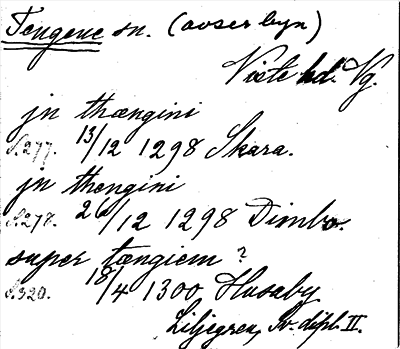 Tengene sn. (avser byn)
Viste hd. Vg.
jn thængini
S.277. 13/12 1298 Skara.
jn thengini
S.278. 26/12 1298 Dimbo.
super tængiem ?
S.320. 18/4 1300 Husaby
Liljegren, Sv. dipl. II.